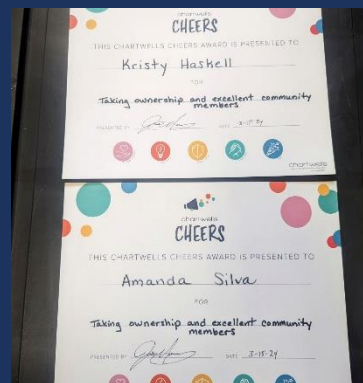 chartwells
CHEERS
THIS CHARTWELLS CHEERS AWARD IS PRESENTED TO
Kristy Haskell
FOR
Taking ownership and excellent community
members
PRESENTED BY DATE 3-15-24
chartwells
chartwells
CHEERS
THIS CHARTWELLS CHEERS AWARD IS PRESENTED TO
Amanda Silva
FOR
Taking ownership and excellent community
members
PRESENTED BY DATE 3-15-24